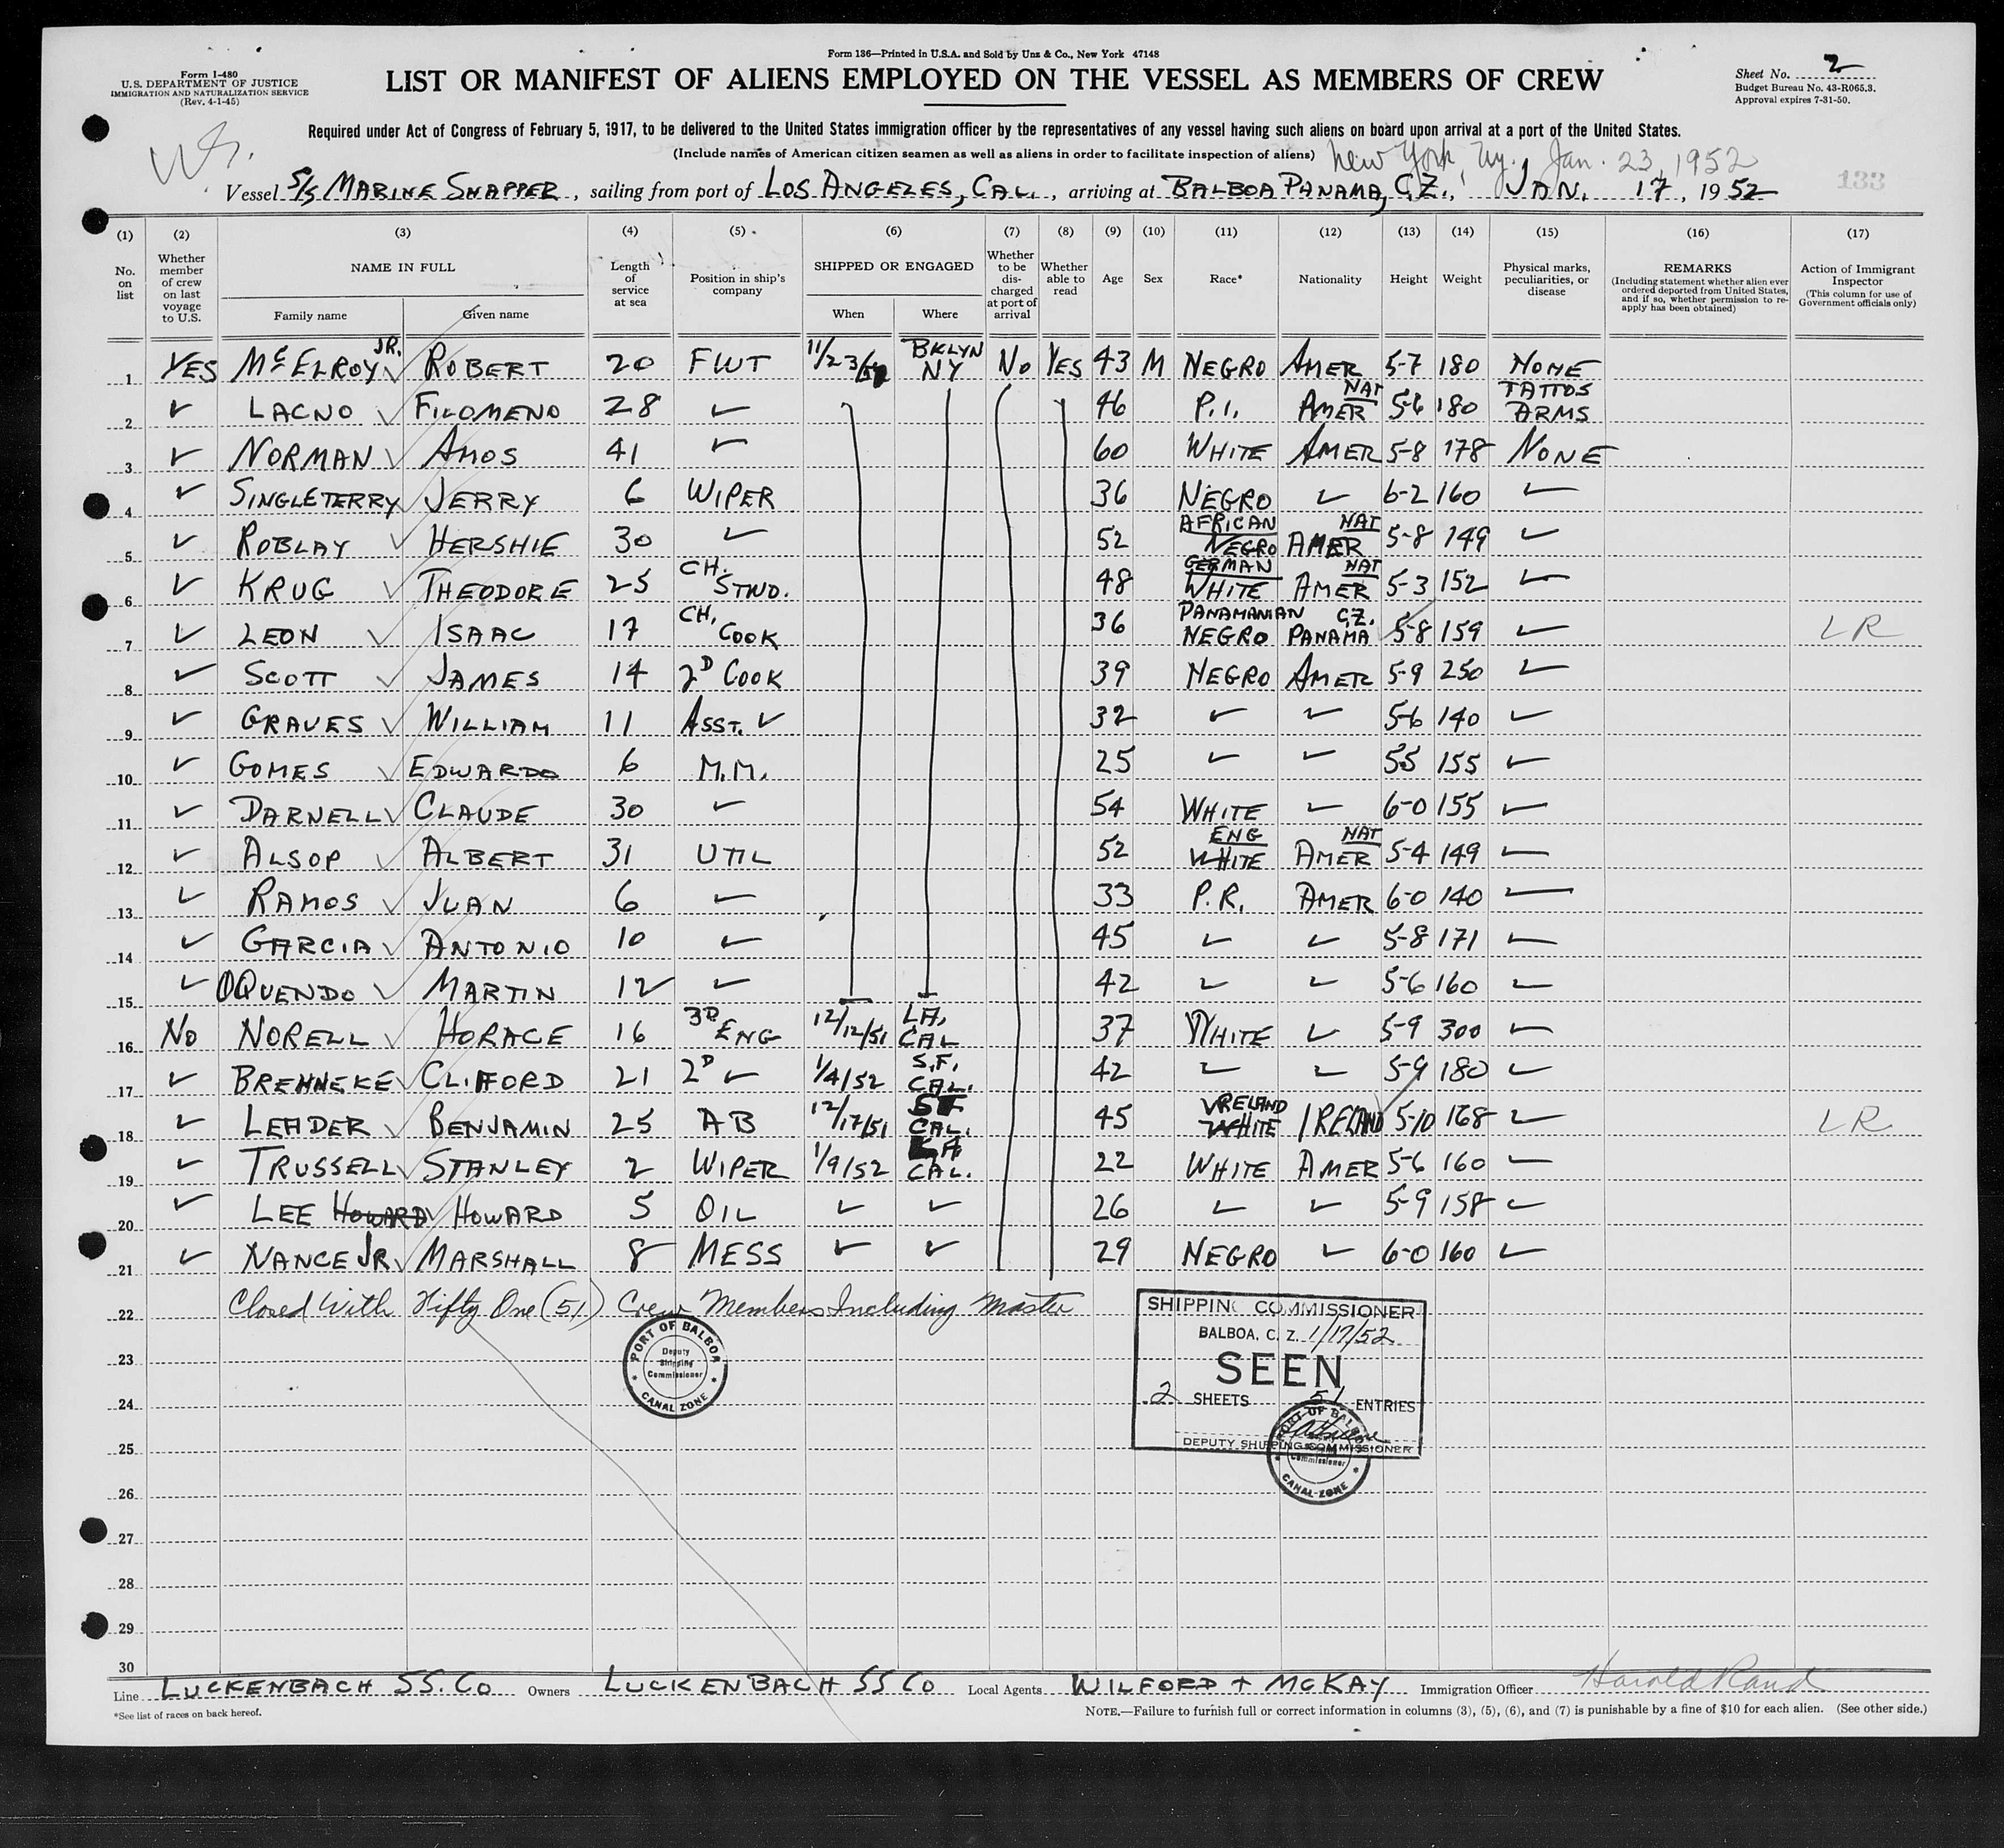 Form 136—Printed in U.S.A. and Sold by Unz & Co., New York 47148
Form I-480
U.S. DEPARTMENT OF JUSTICE
IMMIGRATION AND NATURALIZATION SERVICE
(Rev. 4-1-45)
LIST OR MANIFEST OF ALIENS EMPLOYED ON THE VESSEL AS MEMBERS OF CREW
Sheet No. 2
Budget Bureau No. 43-R065.3.
Approval expires 7-31-50.
Required under Act of Congress of February 5, 1917, to be delivered to the United States immigration officer by the representatives of any vessel having such aliens on board upon arrival at a port of the United States.
(Include names of American citizen seamen as well as aliens in order to facilitate inspection of aliens)
New York, Ny., Jan. 23, 1952
Vessel S/S MARINE SNAPPER, sailing from port of LOS ANGELES, CAL., arriving at BALBOA PANAMA, C.Z., JAN. 17, 1952
133
(1) (2) (3) (4) (5) (6) (7) (8) (9) (10) (11) (12) (13) (14) (15) (16) (17)
No. on list
Whether member of crew on last voyage to U.S.
NAME IN FULL
Family name
Given name
Length of service at sea
Position in ship's company
SHIPPED OR ENGAGED
When
Where
Whether to be discharged at port of arrival
Whether able to read
Age
Sex
Race*
Nationality
Height
Weight
Physical marks, peculiarities, or disease
REMARKS
(Including statement whether alien ever ordered deported from United States, and if so, whether permission to reapply has been obtained)
Action of Immigrant Inspector
(This column for use of Government officials only)
1 YES McELROY JR. ✓ ROBERT 20 FWT 11/23/51 BKLYN NY No YES 43 M NEGRO AMER 5-7 180 NONE
2 ✓ LACNO ✓ FILOMENO 28 ✓ 46 P.I. NAT AMER 5-6 180 TATTOS ARMS
3 ✓ NORMAN ✓ AMOS 41 ✓ 60 WHITE AMER 5-8 178 NONE
4 ✓ SINGLETERRY ✓ JERRY 6 WIPER 36 NEGRO ✓ 6-2 160 ✓
5 ✓ ROBLAY ✓ HERSHIE 30 ✓ 52 AFRICAN NEGRO NAT AMER 5-8 149 ✓
6 ✓ KRUG ✓ THEODORE 25 CH. STWD. 48 GERMAN WHITE NAT AMER 5-3 152 ✓
7 ✓ LEON ✓ ISAAC 17 CH. COOK 36 PANAMANIAN NEGRO C.Z. PANAMA 5-8 159 ✓ LR
8 ✓ SCOTT ✓ JAMES 14 2D COOK 39 NEGRO AMER 5-9 250 ✓
9 ✓ GRAVES ✓ WILLIAM 11 ASST. ✓ 32 ✓ ✓ 5-6 140 ✓
10 ✓ GOMES ✓ EDWARDO 6 M.M. 25 ✓ ✓ 55 155 ✓
11 ✓ DARNELL ✓ CLAUDE 30 ✓ 54 WHITE ✓ 6-0 155 ✓
12 ✓ ALSOP ✓ ALBERT 31 UTIL 52 ENG WHITE NAT AMER 5-4 149 ✓
13 ✓ RAMOS ✓ JUAN 6 ✓ 33 P.R. AMER 6-0 140 ✓
14 ✓ GARCIA ✓ ANTONIO 10 ✓ 45 ✓ ✓ 5-8 171 ✓
15 ✓ OQUENDO ✓ MARTIN 12 ✓ 42 ✓ ✓ 5-6 160 ✓
16 No NORELL ✓ HORACE 16 3D ENG 12/12/51 LA, CAL 37 WHITE ✓ 5-9 300 ✓
17 ✓ BREHNEKE ✓ CLIFFORD 21 2D ✓ 1/4/52 S.F. CAL. 42 ✓ ✓ 5-9 180 ✓
18 ✓ LEADER ✓ BENJAMIN 25 AB 12/17/51 SF CAL. 45 IRELAND WHITE IRELAND 5-10 168 ✓ LR
19 ✓ TRUSSELL ✓ STANLEY 2 WIPER 1/9/52 LA CAL. 22 WHITE AMER 5-6 160 ✓
20 ✓ LEE HOWARD ✓ HOWARD 5 OIL ✓ ✓ 26 ✓ ✓ 5-9 158 ✓
21 ✓ NANCE JR. ✓ MARSHALL 8 MESS ✓ ✓ 29 NEGRO ✓ 6-0 160 ✓
22 Closed With Fifty One (51) Crew Members Including Master
23
24
25
26
27
28
29
30
PORT OF BALBOA
Deputy Shipping Commissioner
CANAL ZONE
SHIPPING COMMISSIONER
BALBOA, C. Z. 1/17/52
SEEN
2 SHEETS 51 ENTRIES
DEPUTY SHIPPING COMMISSIONER
PORT OF BALBOA
Commissioner
CANAL ZONE
Line LUCKENBACH SS. Co Owners LUCKENBACH SS Co Local Agents WILFORD + McKAY Immigration Officer Harold Rand
*See list of races on back hereof.
NOTE.—Failure to furnish full or correct information in columns (3), (5), (6), and (7) is punishable by a fine of $10 for each alien. (See other side.)